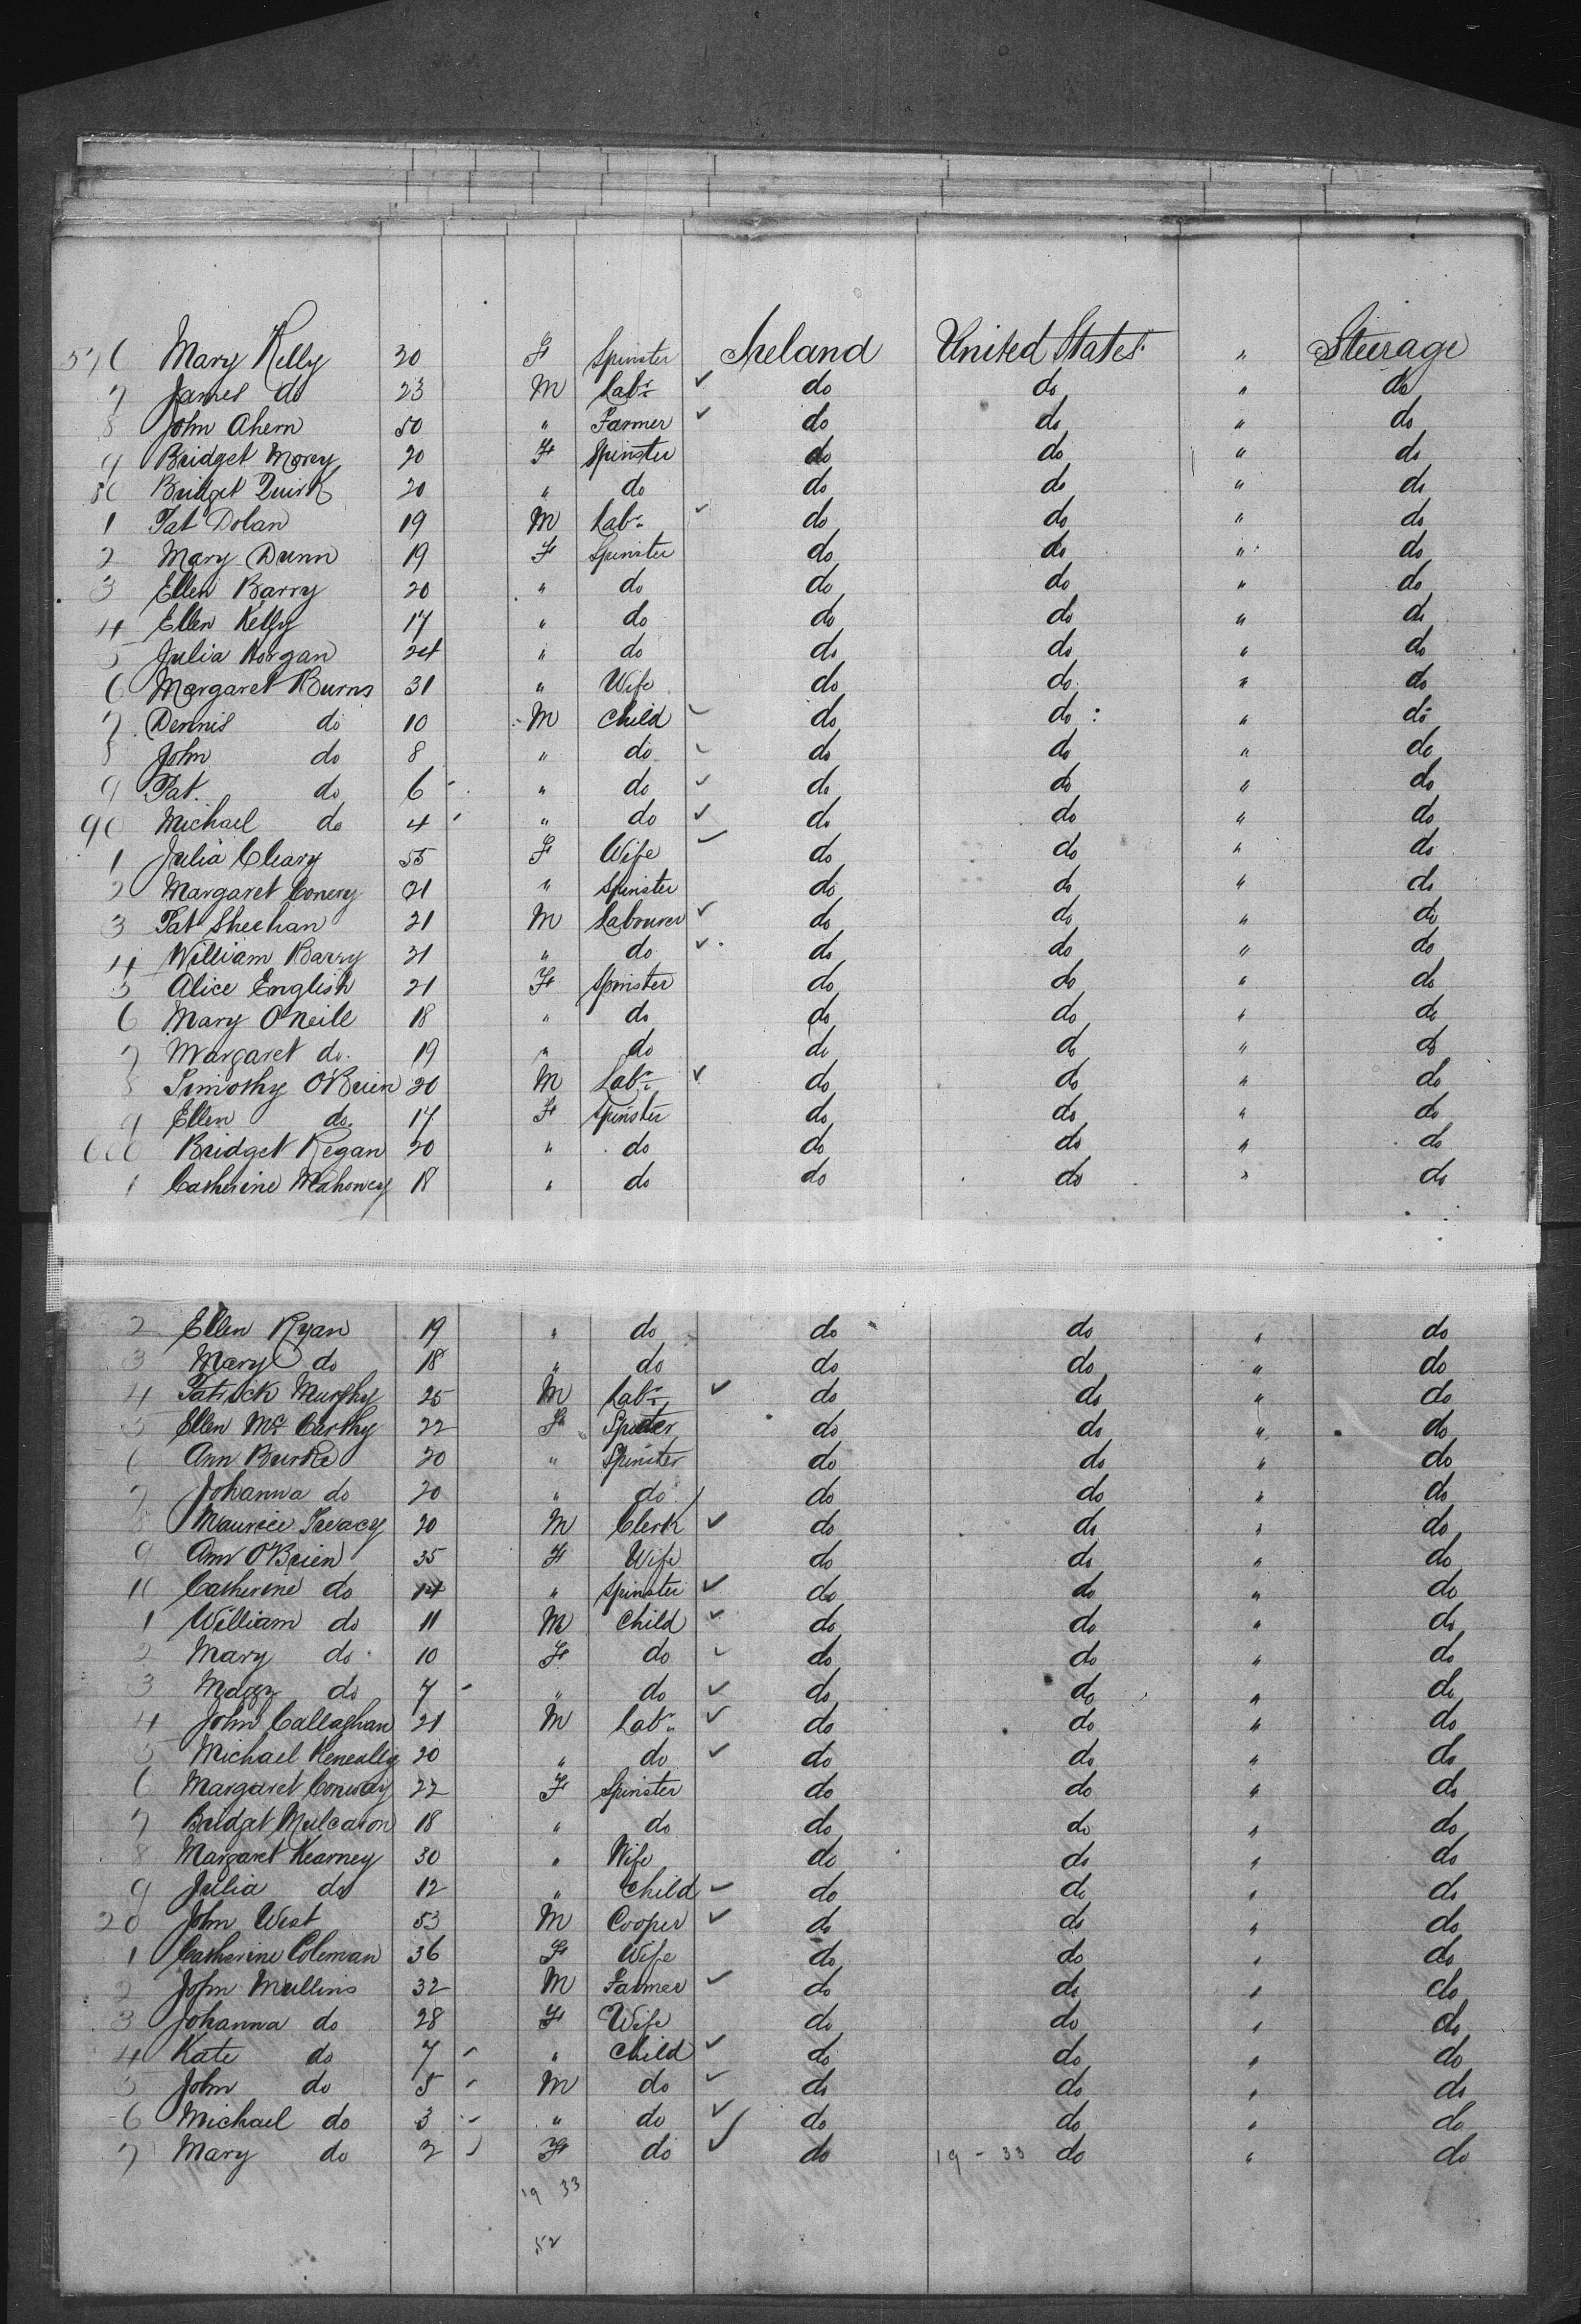 576 Mary Kelly 30 F Spinster Ireland United States " Steerage
7 James do 23 M Labr ✓ do do " do
8 John Ahern 50 " Farmer ✓ do do " do
9 Bridget Morey 20 F Spinster do do " do
80 Bridget Quirk 20 " do do do " do
1 Pat Dolan 19 M Labr ✓ do do " do
2 Mary Dunn 19 F Spinster do do " do
3 Ellen Barry 20 " do do do " do
4 Ellen Kelly 17 " do do do " do
5 Julia Horgan 24 " do do do " do
6 Margaret Burns 31 " Wife do do " do
7 Dennis do 10 M Child ✓ do do " do
8 John do 8 " do ✓ do do " do
9 Pat do 6 " do ✓ do do " do
90 Michael do 4 " do ✓ do do " do
1 Julia Cleary 55 F Wife ✓ do do " do
2 Margaret Conery 21 " Spinster do do " do
3 Pat Sheehan 21 M Labourer ✓ do do " do
4 William Barry 31 " do ✓ do do " do
5 Alice English 21 F Spinster do do " do
6 Mary O'Neill 18 " do do do " do
7 Margaret do 19 " do do do " do
8 Timothy O'Brien 20 M Labr ✓ do do " do
9 Ellen do 17 F Spinster do do " do
600 Bridget Regan 20 " do do do " do
1 Catherine Mahoney 18 " do do do " do
2 Ellen Ryan 19 " do do do " do
3 Mary do 18 " do do do " do
4 Patrick Murphy 25 M Labr ✓ do do " do
5 Ellen McCarthy 22 F do do " do
6 Ann Burke 20 " Spinster do do " do
7 Johanna do 20 " do do do " do
8 Maurice 20 M Clerk ✓ do do " do
9 Ann O'Brien 35 F Wife do do " do
10 Catherine do 14 " Spinster ✓ do do " do
1 William do 11 M Child ✓ do do " do
2 Mary do 10 F do ✓ do do " do
3 Maggy do 7 " do ✓ do do " do
4 John Callaghan 21 M Labr ✓ do do " do
5 Michael Keneally 20 " do ✓ do do " do
6 Margaret Conway 22 F Spinster do do " do
7 Bridget Mulcaron 18 " do do do " do
8 Margaret Kearney 30 " Wife do do " do
9 Julia do 12 " Child ✓ do do " do
20 John West 53 M Cooper ✓ do do " do
1 Catherine Coleman 36 F Wife do do " do
2 John Mullins 32 M Farmer ✓ do do " do
3 Johanna do 28 F Wife do do " do
4 Kate do 7 " Child ✓ do do " do
5 John do 5 M do ✓ do do " do
6 Michael do 3 " do ✓ do do " do
7 Mary do 2 F do ✓ do 19 - 33 do " do
19 33
52